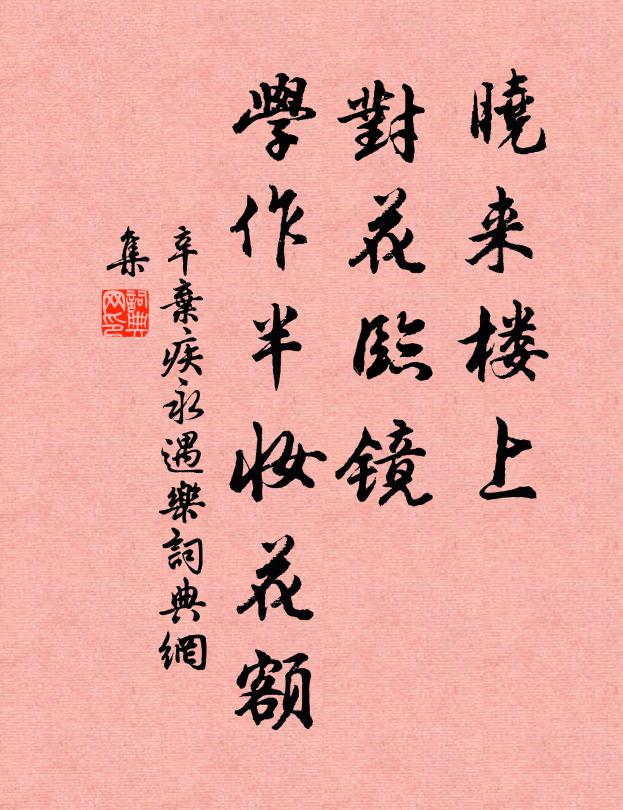 曉来楼上
對花臨镜
學作半妆花额
辛棄疾永遇樂詞典網
集
詞典网印